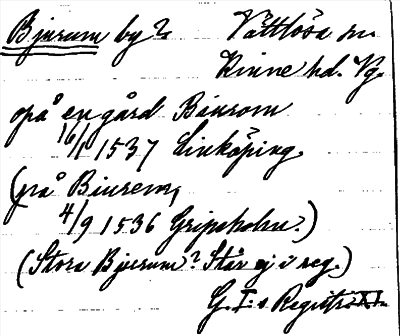 Bjurum by? Vättlösa sn
Kinne hd. Vg.
opå en gård Biurom
16/1 1537 Linköping.
(på Biurem,
4/9 1536 Gripsholm.)
(Stora Bjurum? Står ej i reg.)
G. I:s Registr. XI